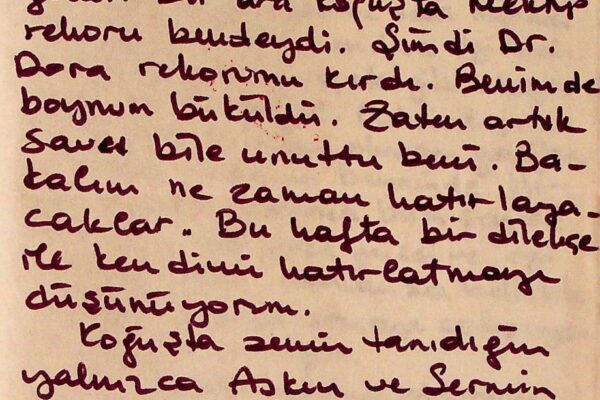 bir ara koğuşta mektup
rekoru bendeydi. Şimdi Dr.
Dora rekorumu kırdı. Benim de
boynum büküldü. Zaten artık
Savcı bile unuttu beni. Ba-
kalım ne zaman hatırlaya-
caklar.. Bu hafta bir dilekçe
ile kendimi hatırlatmayı
düşünüyorum.
Koğuşta senin tanıdığın
yalnızca Aşkın ve Sermin